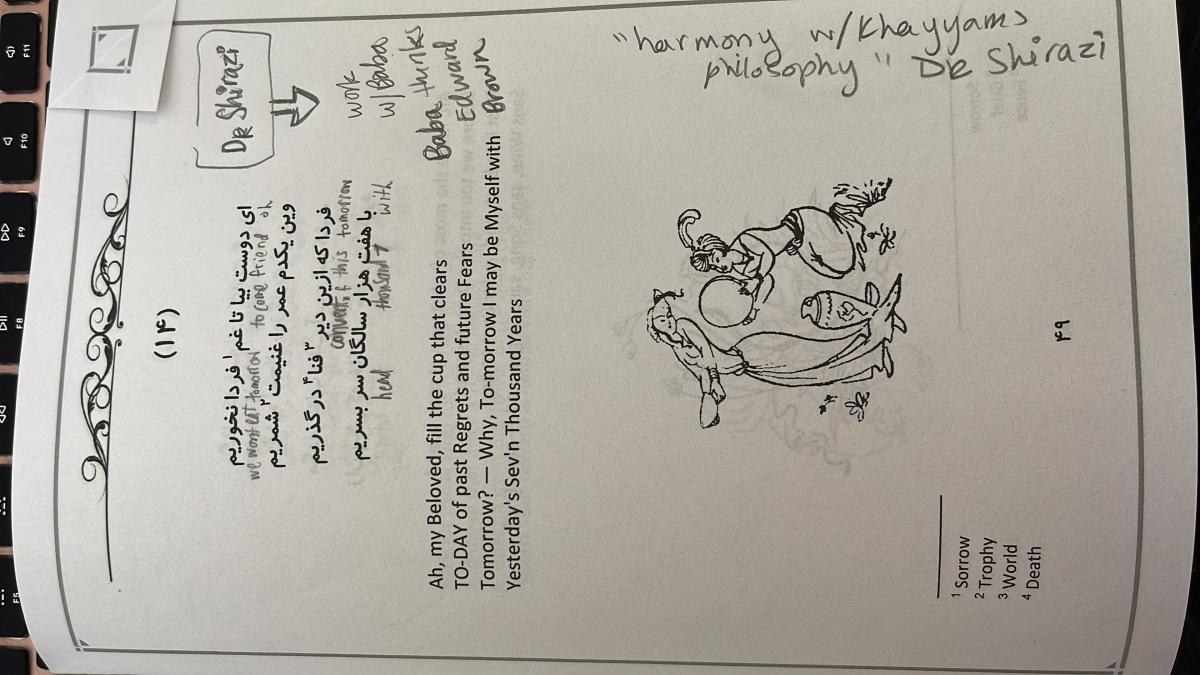 (۱۴)
Dr Shirazi
ای دوست بیا تا غم۱ فردا نخوریم
we wont eat tomorrow to come friend oh
وین یکدم عمر را غنیمت۲ شمریم
فردا که ازین دیر۳ فنا۴ درگذریم
convent of this tomorrow
با هفت هزار سالگان سر بسریم
head thousand 7 with
work
w/Baba
Baba thinks
Edward
Brown
Ah, my Beloved, fill the cup that clears
TO-DAY of past Regrets and future Fears
Tomorrow? — Why, To-morrow I may be Myself with
Yesterday's Sev'n Thousand Years
"harmony w/Khayyams
philosophy" Dr Shirazi
1 Sorrow
2 Trophy
3 World
4 Death
۴۹
F11
F10
F9
F8
F5